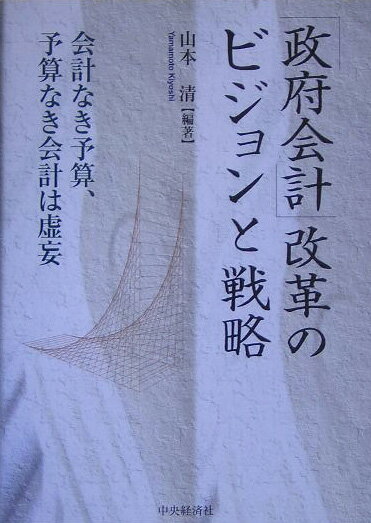 「政府会計」改革の
ビジョンと戦略
山本 清【編著】
Yamamoto Kiyoshi
会計なき予算、
予算なき会計は虚妄
中央経済社